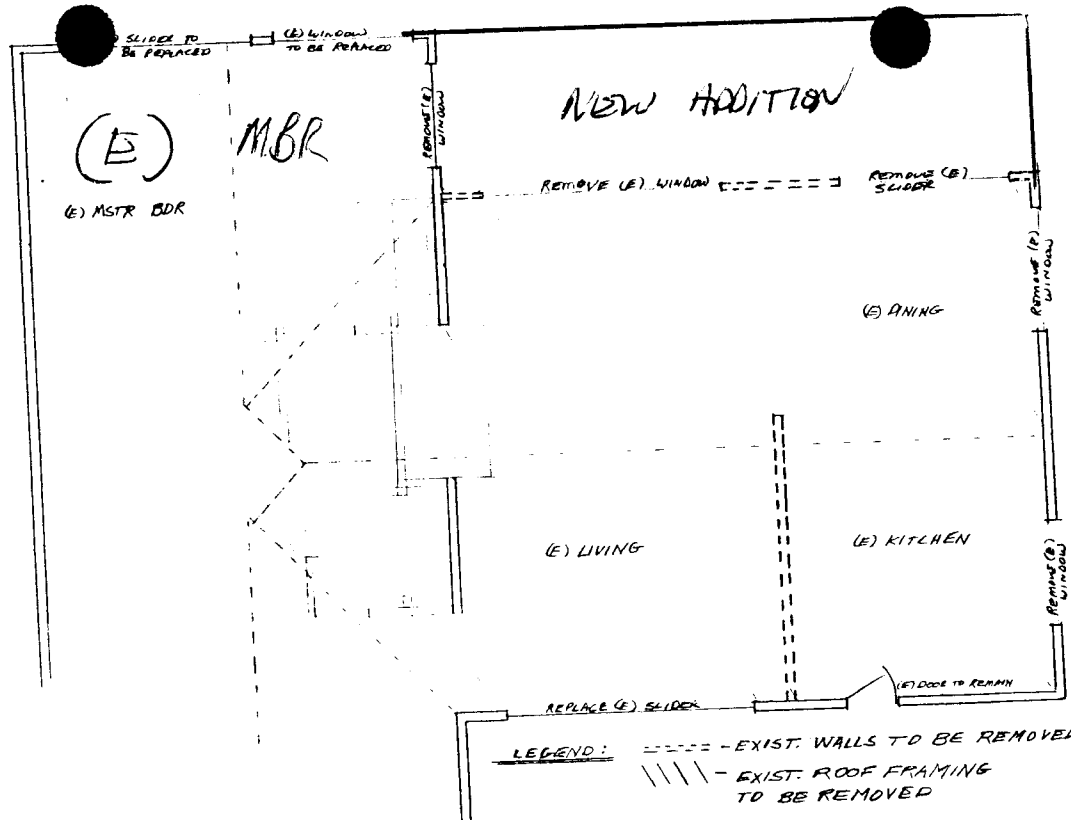 SLIDER TO
BE REPLACED
(E) WINDOW
TO BE REPLACED
(E) MBR
NEW ADDITION
REMOVE (E)
WINDOW
(E) MSTR BDR
REMOVE (E) WINDOW
REMOVE (E)
SLIDER
REMOVE (E)
WINDOW
(E) DINING
(E) LIVING
(E) KITCHEN
REMOVE (E)
WINDOW
(E) DOOR TO REMAIN
REPLACE (E) SLIDER
LEGEND:
- EXIST. WALLS TO BE REMOVED
- EXIST. ROOF FRAMING
TO BE REMOVED